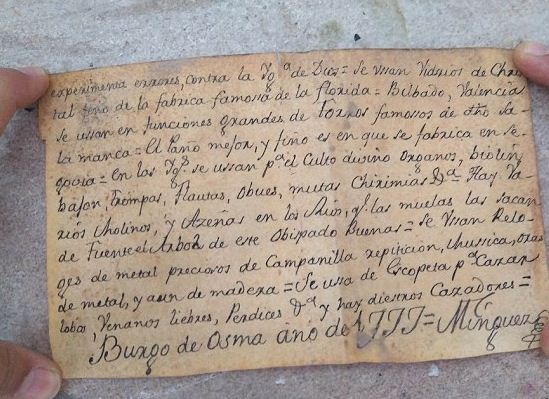 experimenta errores, contra la Yg.ª de Dios = Se vssan Vidrios de Chris
tal fino de la fabrica famossa de la florida = Bilbado, Valencia
se ussan en funciones grandes de toros famosos de dho Sa
lamanca = El Paño mejor, y fino es en que se fabrica en Se
govia = en las Yg.s se ussan p.ª el Culto divino organos, biolin
bajon, trompas, Flautas, Obues, mutas Chirimias &.ª = Hay Va
rios Molinos, y Azeñas en los Rios, q.e las muelas las sacan
de Fuente el Arbol de este Obispado Buenas = Se Vssan Relo
ges de metal preciosos de Campanilla repitición, Mussica, otros
de metal, y aun de madera = Se usa de Escopeta p.ª Cazar
lobos, Venaos liebres, Perdices &.ª y hay diestros Cazadores =
Burgo de Osma año de 1777 = Minguez